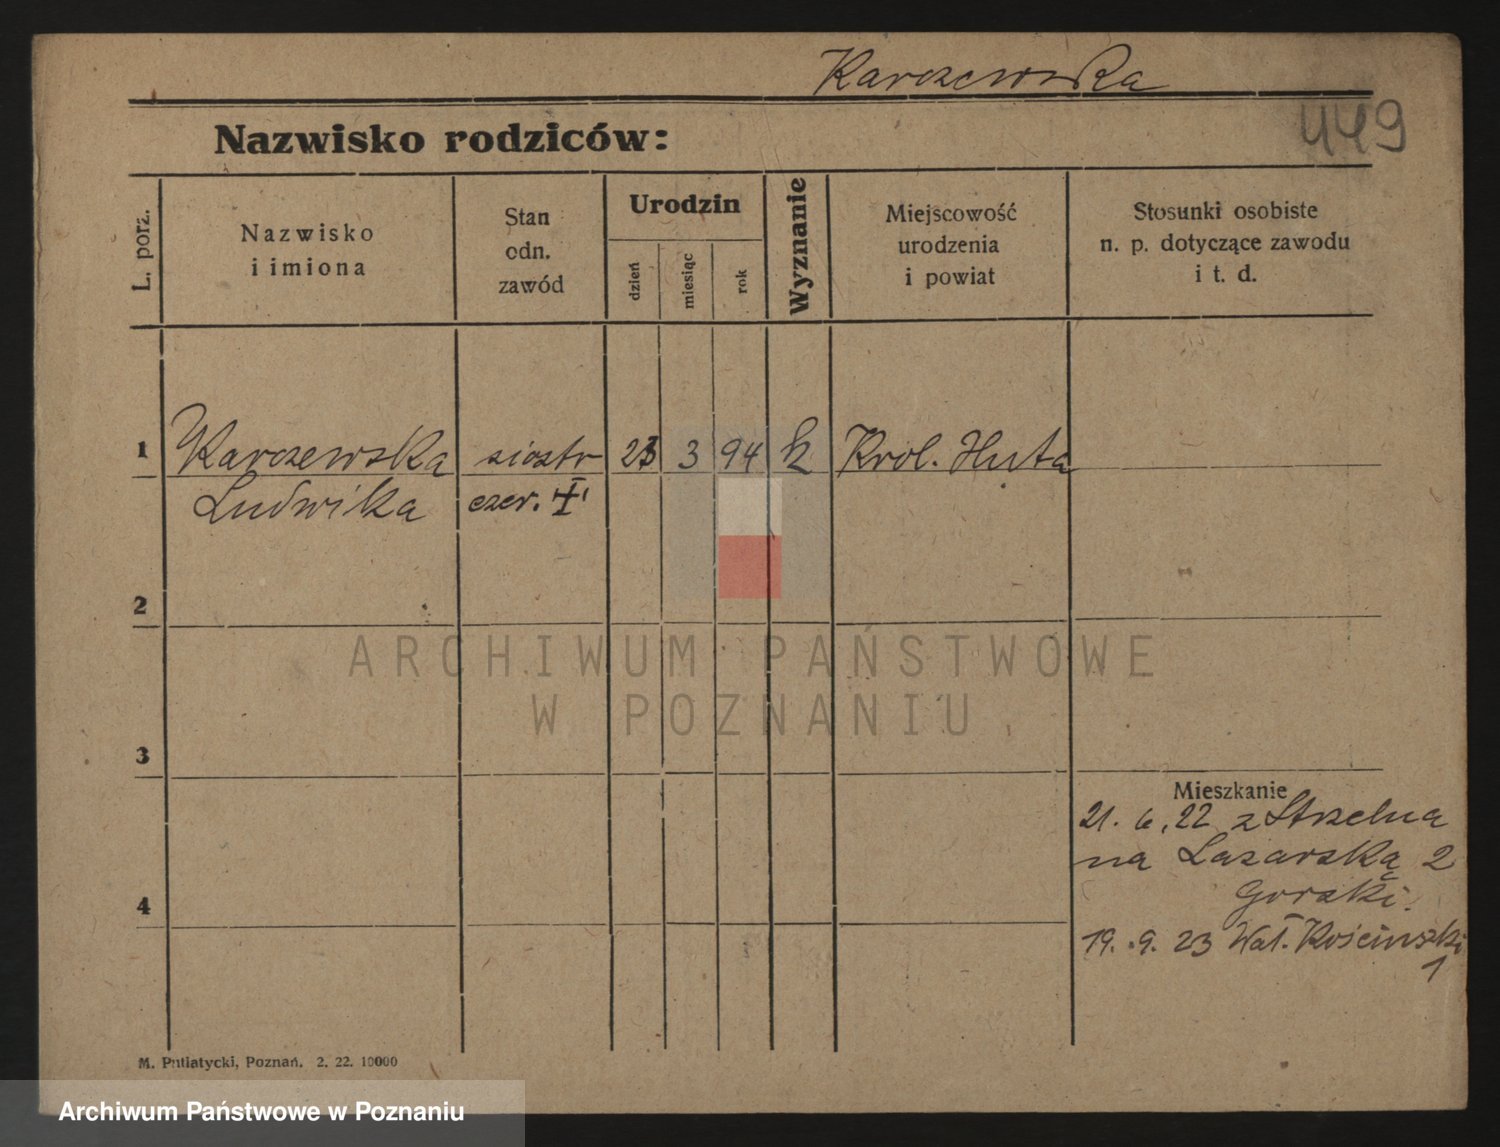 Karczewska
449
Nazwisko rodziców:
L. porz.
Nazwisko
i imiona
Stan
odn.
zawód
Urodzin
dzień
miesiąc
rok
Wyznanie
Miejscowość
urodzenia
i powiat
Stosunki osobiste
n. p. dotyczące zawodu
i t. d.
1 Karczewska siostr 23 3 94 k Krol. Huta
Ludwika czer. +
2
3
4
Mieszkanie
21. 6. 22 z Strzelna
na Lazarską 2
Gorski.
19. 9. 23 Wał. Kościuszki
1
M. Putiatycki, Poznań. 2. 22. 10000
ARCHIWUM PAŃSTWOWE
W POZNANIU
Archiwum Państwowe w Poznaniu